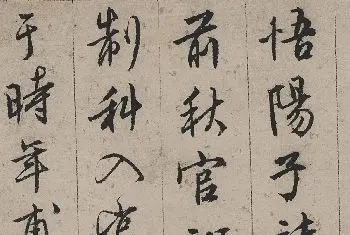 悟陽子
前秋官
制科入
于時年甫